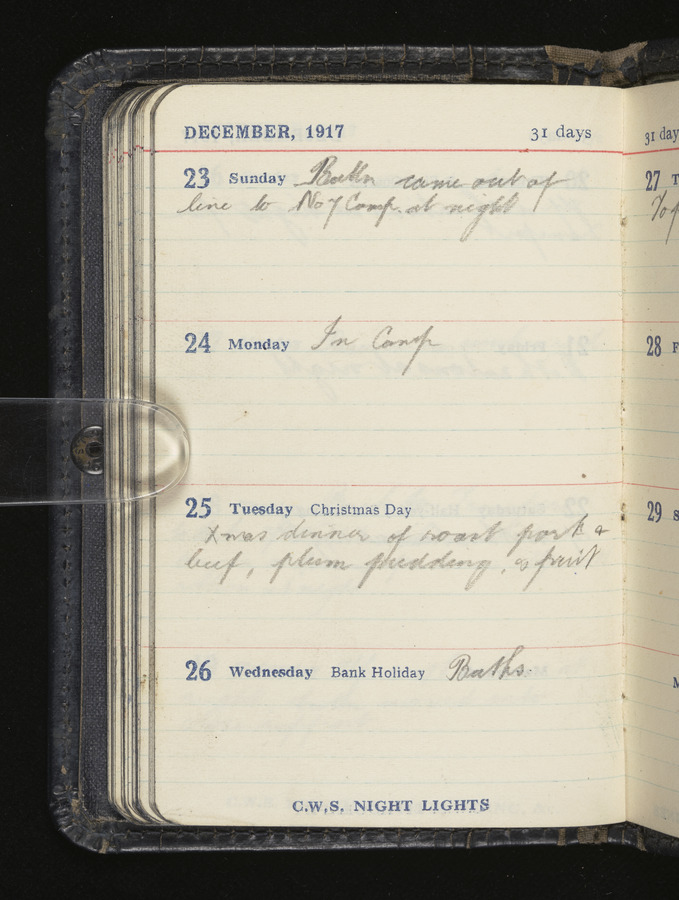 DECEMBER, 1917 31 days
23 Sunday Battn came out of
line to No 7 Camp. at night
24 Monday In Camp
25 Tuesday Christmas Day
Xmas dinner of roast pork &
beef, plum pudding, & fruit
26 Wednesday Bank Holiday Baths.
C.W.S. NIGHT LIGHTS
31 day
27 T
28 F
29 S